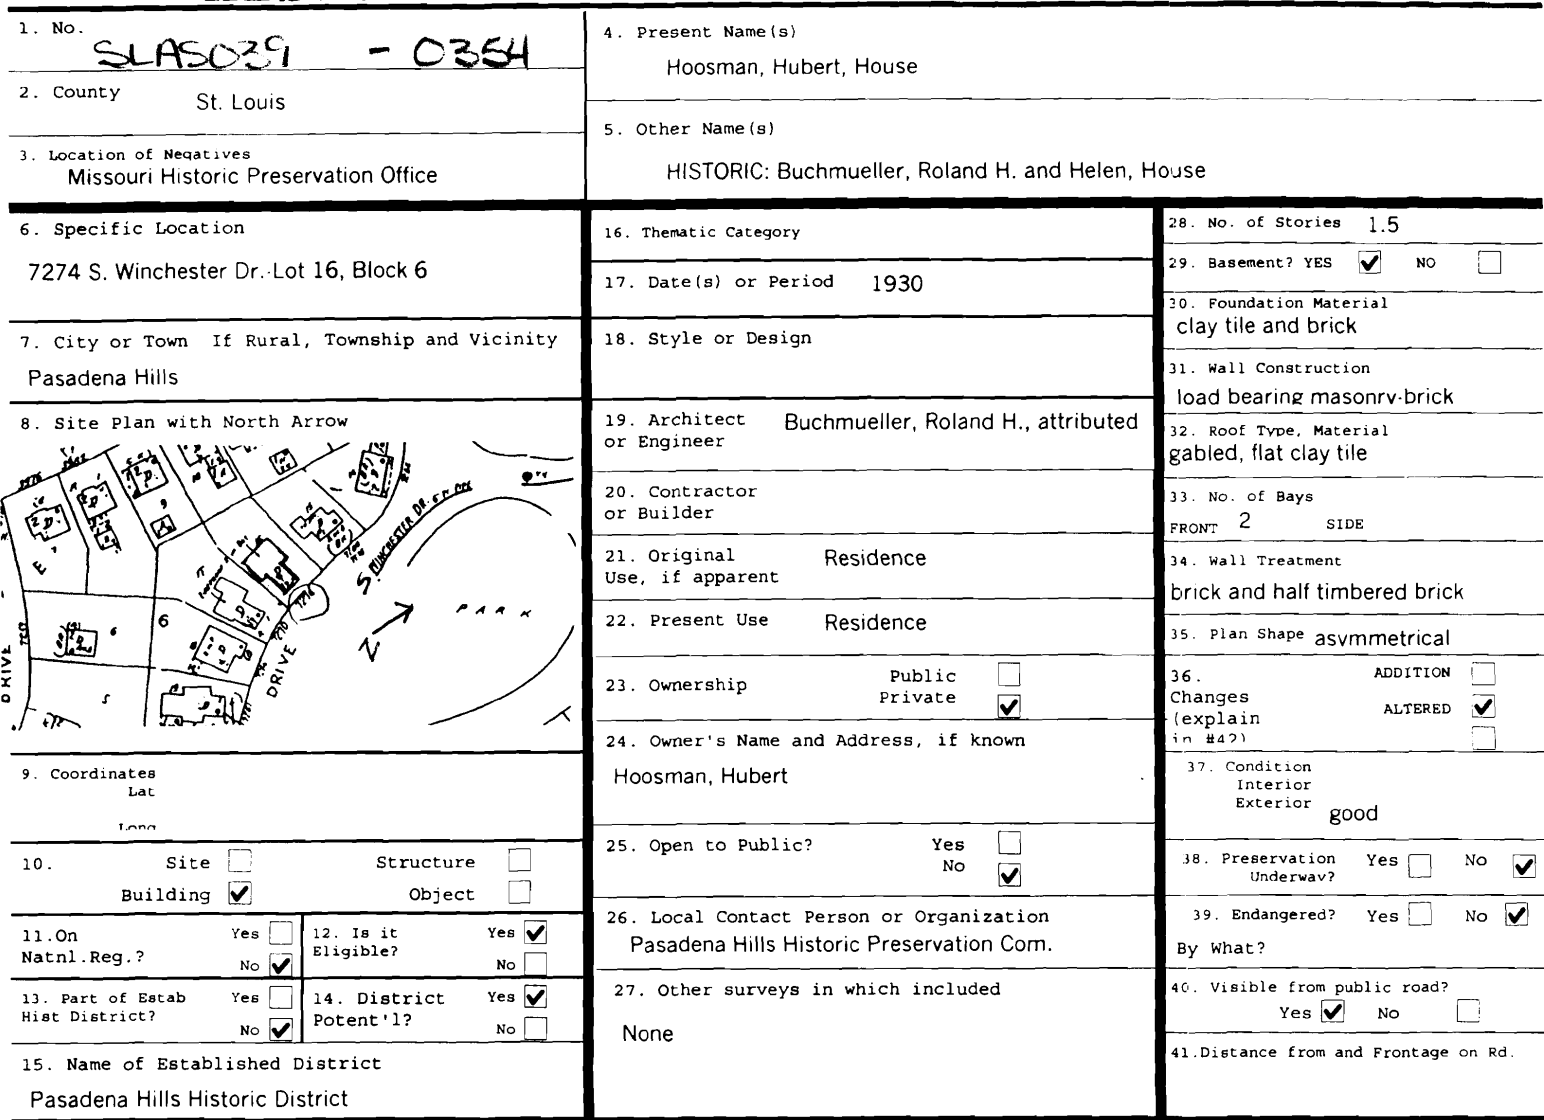 1. No.
SLAS039 - 0354
2. County
St. Louis
3. Location of Negatives
Missouri Historic Preservation Office
4. Present Name(s)
Hoosman, Hubert, House
5. Other Name(s)
HISTORIC: Buchmueller, Roland H. and Helen, House
6. Specific Location
7274 S. Winchester Dr. Lot 16, Block 6
7. City or Town If Rural, Township and Vicinity
Pasadena Hills
8. Site Plan with North Arrow
S. WINCHESTER DR.
PARK
DRIVE
DRIVE
6
Z
9. Coordinates
Lat
Long
10. Site Structure
Building ✔ Object
11.On Natnl.Reg.?
Yes
No ✔
12. Is it Eligible?
Yes ✔
No
13. Part of Estab Hist District?
Yes
No ✔
14. District Potent'l?
Yes ✔
No
15. Name of Established District
Pasadena Hills Historic District
16. Thematic Category
17. Date(s) or Period 1930
18. Style or Design
19. Architect Buchmueller, Roland H., attributed
or Engineer
20. Contractor
or Builder
21. Original Residence
Use, if apparent
22. Present Use Residence
23. Ownership
Public
Private ✔
24. Owner's Name and Address, if known
Hoosman, Hubert
25. Open to Public? Yes
No ✔
26. Local Contact Person or Organization
Pasadena Hills Historic Preservation Com.
27. Other surveys in which included
None
28. No. of Stories 1.5
29. Basement? YES ✔ NO
30. Foundation Material
clay tile and brick
31. Wall Construction
load bearing masonry-brick
32. Roof Type, Material
gabled, flat clay tile
33. No. of Bays
FRONT 2 SIDE
34. Wall Treatment
brick and half timbered brick
35. Plan Shape asymmetrical
36.
Changes
(explain
in #42)
ADDITION
ALTERED ✔
37. Condition
Interior
Exterior good
38. Preservation Yes No ✔
Underway?
39. Endangered? Yes No ✔
By What?
40. Visible from public road?
Yes ✔ No
41.Distance from and Frontage on Rd.